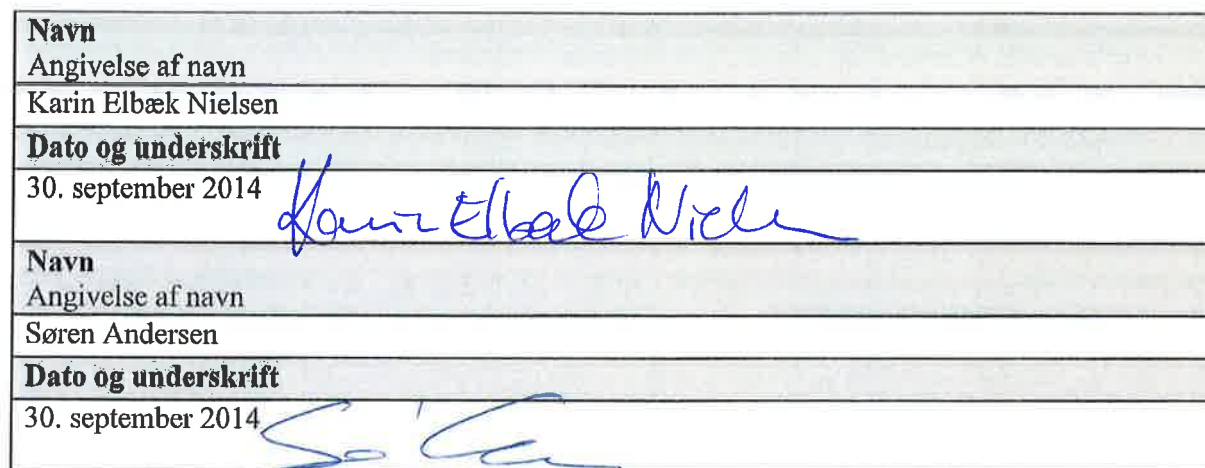 Navn
Angivelse af navn
Karin Elbæk Nielsen
Dato og underskrift
30. september 2014
Karin Elbæk Nielsen
Navn
Angivelse af navn
Søren Andersen
Dato og underskrift
30. september 2014